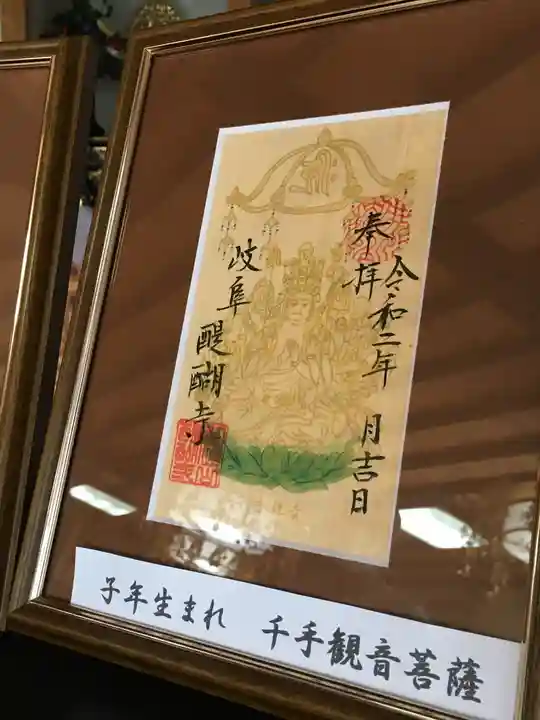 奉拝
令和二年 月吉日
岐阜
醍醐寺
子年生まれ 千手観音菩薩